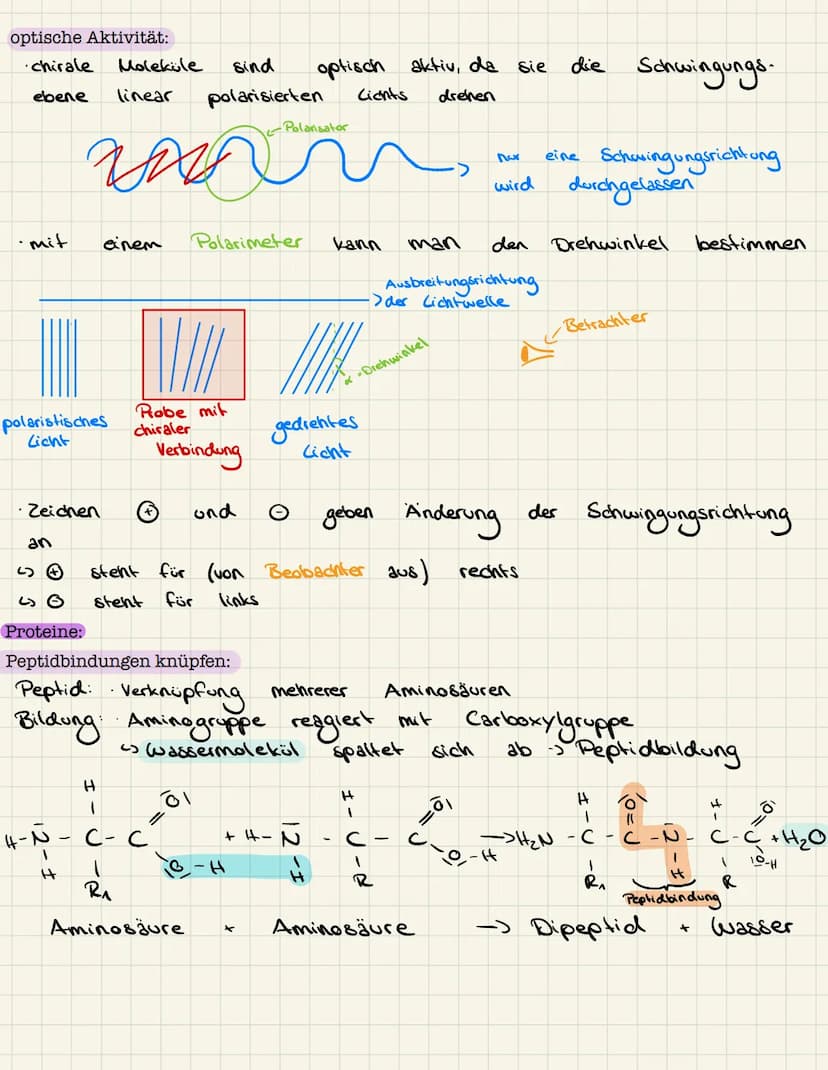 optische Aktivität:
· chirale Moleküle sind optisch aktiv, da sie die Schwingungs-
ebene linear polarisierten Lichts drehen
Polarisator
nur eine Schwingungsrichtung
wird durchgelassen
· mit einem Polarimeter kann man den Drehwinkel bestimmen
Ausbreitungsrichtung
der Lichtwelle
Betrachter
α - Drehwinkel
polaristisches
Licht
Probe mit
chiraler
Verbindung
gedrehtes
Licht
· Zeichen ⊕ und ⊖ geben Änderung der Schwingungsrichtung
an
↳ ⊕ steht für (von Beobachter aus) rechts
↳ ⊖ steht für links
Proteine:
Peptidbindungen knüpfen:
Peptid: · Verknüpfung mehrerer Aminosäuren
Bildung: · Aminogruppe reagiert mit Carboxylgruppe
↳ Wassermolekül spaltet sich ab -> Peptidbildung
H O H O H O H O
H-N - C - C + H-N - C - C -> H₂N - C - C - N - C - C + H₂O
H R₁ O-H H R O-H R₁ H R O-H
Peptidbindung
Aminosäure + Aminosäure -> Dipeptid + Wasser